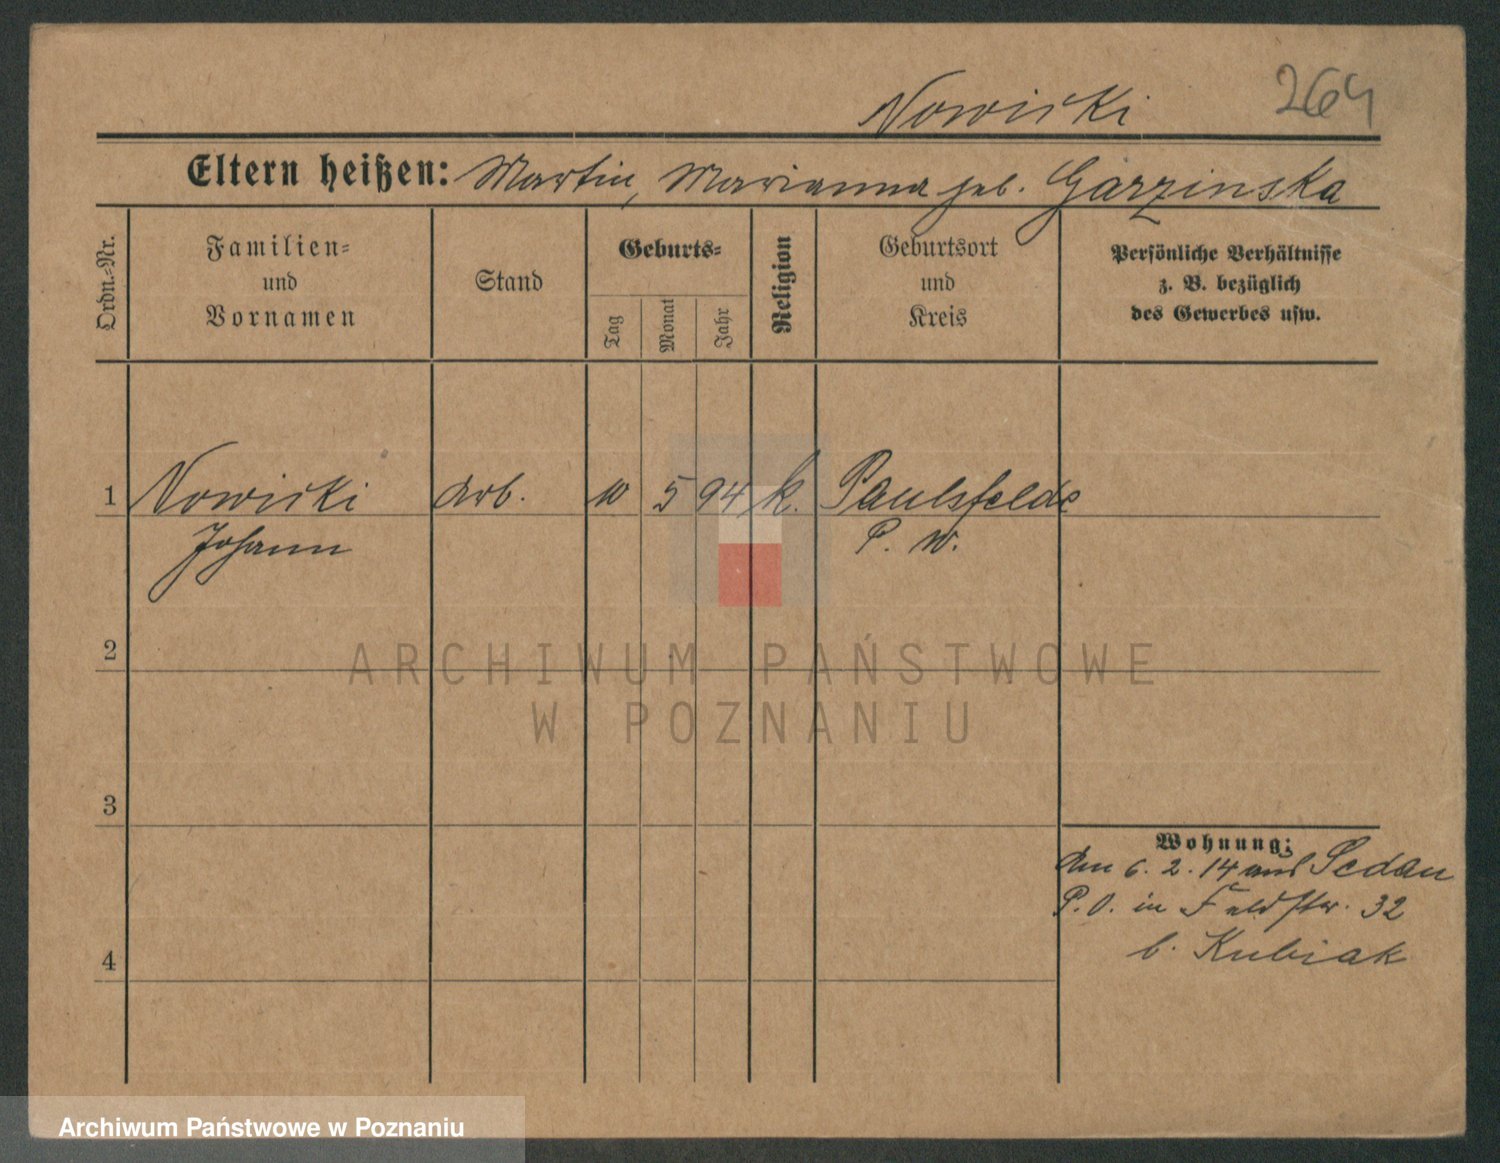 Nowicki
264
Eltern heißen: Martin, Marianna geb. Garzinska
Ordn.-Nr.
Familien-
und
Vornamen
Stand
Geburts-
Tag
Monat
Jahr
Religion
Geburtsort
und
Kreis
Persönliche Verhältnisse
z. B. bezüglich
des Gewerbes usw.
1 Nowicki Arb. 10 5 94 k. Paulsfelde
Johann P. W.
2
3
4
Wohnung:
Am 6. 2. 14 aus Sedan
P. O. in Feldstr. 32
b. Kubiak
ARCHIWUM PAŃSTWOWE
W POZNANIU
Archiwum Państwowe w Poznaniu